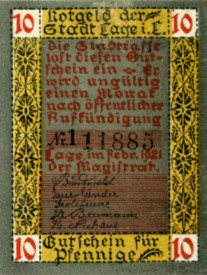 10 Notgeld der 10
Stadt Lage i. L.
die Stadtkasse
löst diesen Gut-
schein ein Er
wird ungültig
einen Monat
nach öffentlicher
Aufkündigung
№ 1 11885
Lage, im Febr. 1921
der Magistrat.
10 Gutschein für 10
Pfennige